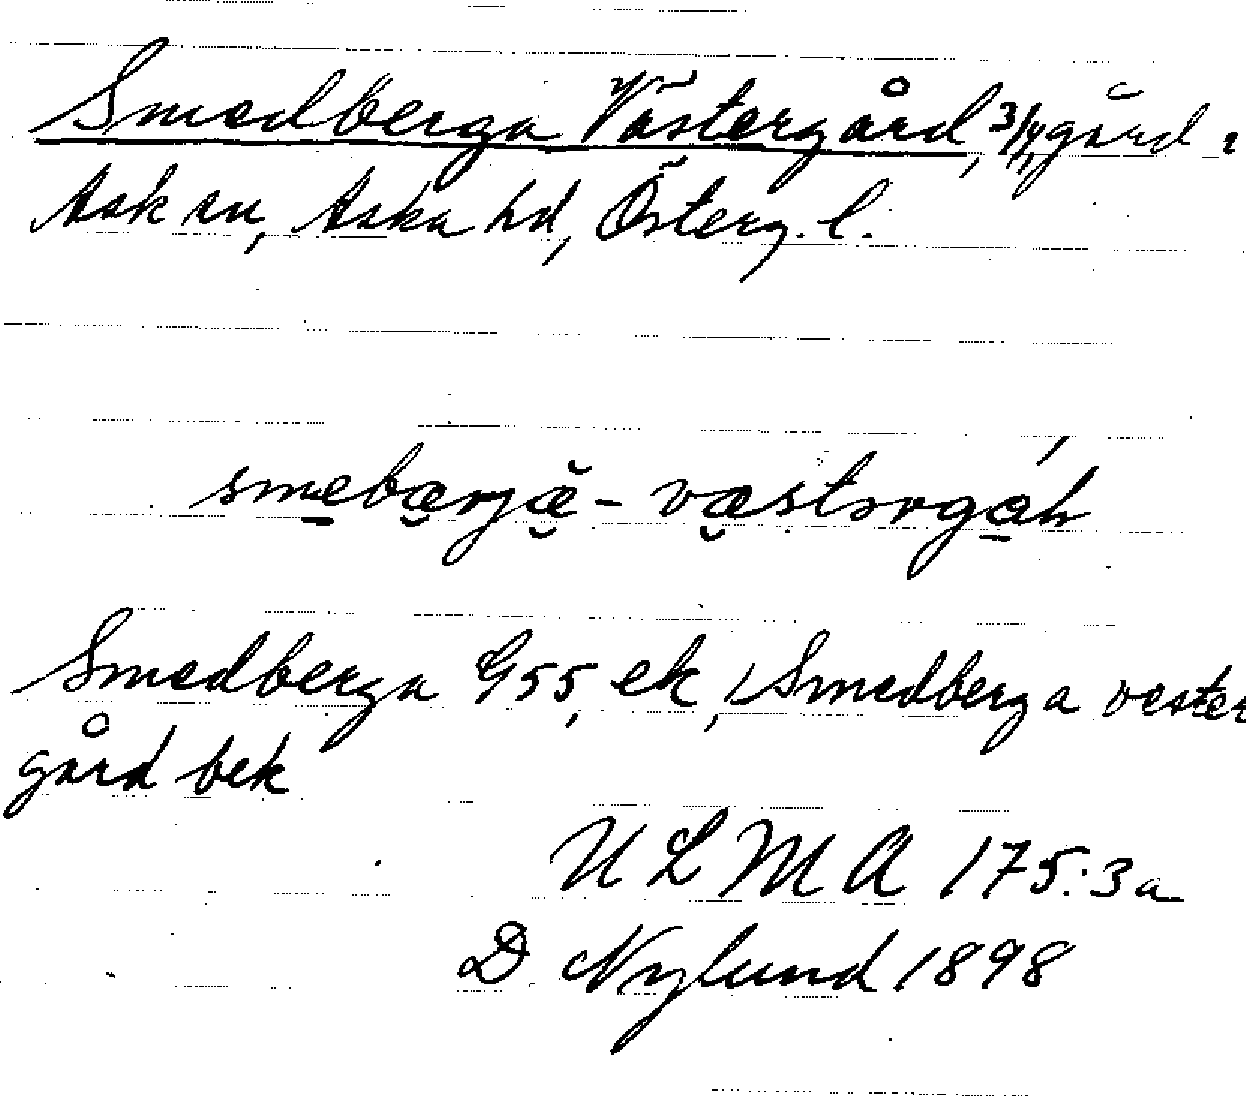 Smedberga Västergård, 3/4 gård i
Ask sn, Aska hd, Österg. l.
smebærjæ - væstərgåh
Smedberga G55, ek, Smedberga vester
gård bek
ULMA 175:3a
D Nylund 1898